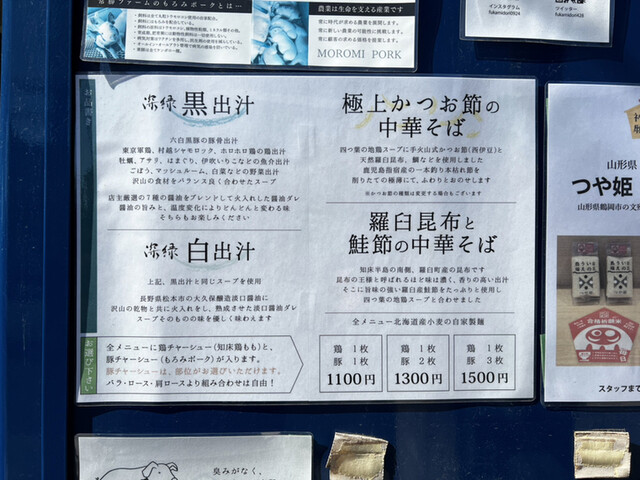 常勝ファームのもろみポークとは…
農業は生命を支える産業です
常に時代が求める農業を展開します。
常に新しい農業の可能性に挑戦します。
常に顧客の求める価格を提案します。
MOROMI PORK
インスタグラム
fukamidori0924
ツイッター
fukamidori428
深緑 黒出汁
六白黒豚の豚骨出汁
東京軍鶏、村越シャモロック、ホロホロ鶏の鶏出汁
牡蠣、アサリ、はまぐり、伊吹いりこなどの魚介出汁
ごぼう、マッシュルーム、白菜などの野菜出汁
沢山の食材をバランス良く合わせたスープ
店主厳選の7種の醤油をブレンドして火入れした醤油ダレ
醤油の旨みと、温度変化によりどんどんと変わる味
そちらもお楽しみください
深緑 白出汁
上記、黒出汁と同じスープを使用
長野県松本市の大久保醸造淡口醤油に
沢山の乾物と共に火入れをし、熟成させた淡口醤油ダレ
スープそのものの味を優しく味わえます
極上かつお節の
中華そば
四つ葉の地鶏スープに手火山式かつお節(西伊豆)と
天然羅臼昆布、鯛などを使用しました
鹿児島指宿産の一本釣り本枯れ節を
削りたての極薄にて、ふわりとおのせします
※かつお節の種類は変更する場合もございます
羅臼昆布と
鮭節の中華そば
知床半島の南側、羅臼町産の昆布です
昆布の王様と呼ばれるほど味は濃く、香りの高い出汁
そこに旨味の強い羅臼産鮭節をたっぷりと使用し
四つ葉の地鶏スープと合わせました
全メニュー北海道産小麦の自家製麺
お選び下さい
全メニューに鶏チャーシュー(知床鶏もも)と、
豚チャーシュー(もろみポーク)が入ります。
豚チャーシューは、部位がお選びいただけます。
バラ・ロース・肩ロースより組み合わせは自由!
鶏 1枚
豚 1枚
1100円
鶏 1枚
豚 2枚
1300円
鶏 1枚
豚 3枚
1500円
山形県
つや姫
山形県鶴岡市の文
スタッフまで
臭みがなく、